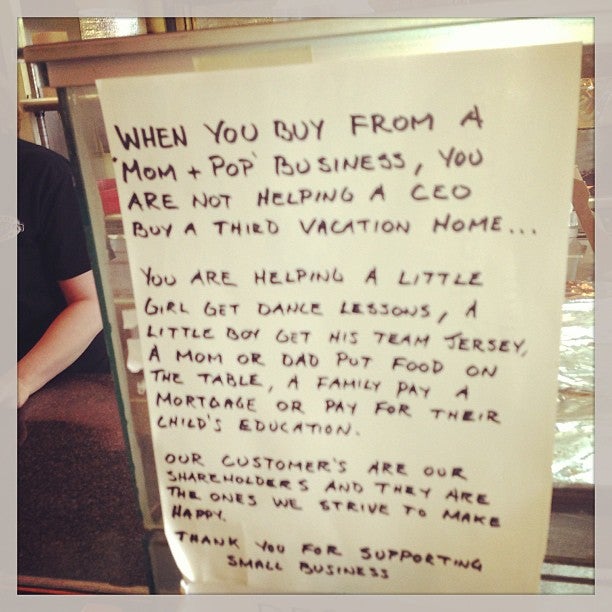 WHEN YOU BUY FROM A
"MOM + POP" BUSINESS, YOU
ARE NOT HELPING A CEO
BUY A THIRD VACATION HOME...
YOU ARE HELPING A LITTLE
GIRL GET DANCE LESSONS, A
LITTLE BOY GET HIS TEAM JERSEY,
A MOM OR DAD PUT FOOD ON
THE TABLE, A FAMILY PAY A
MORTGAGE OR PAY FOR THEIR
CHILD'S EDUCATION.
OUR CUSTOMER'S ARE OUR
SHAREHOLDERS AND THEY ARE
THE ONES WE STRIVE TO MAKE
HAPPY.
THANK YOU FOR SUPPORTING
SMALL BUSINESS